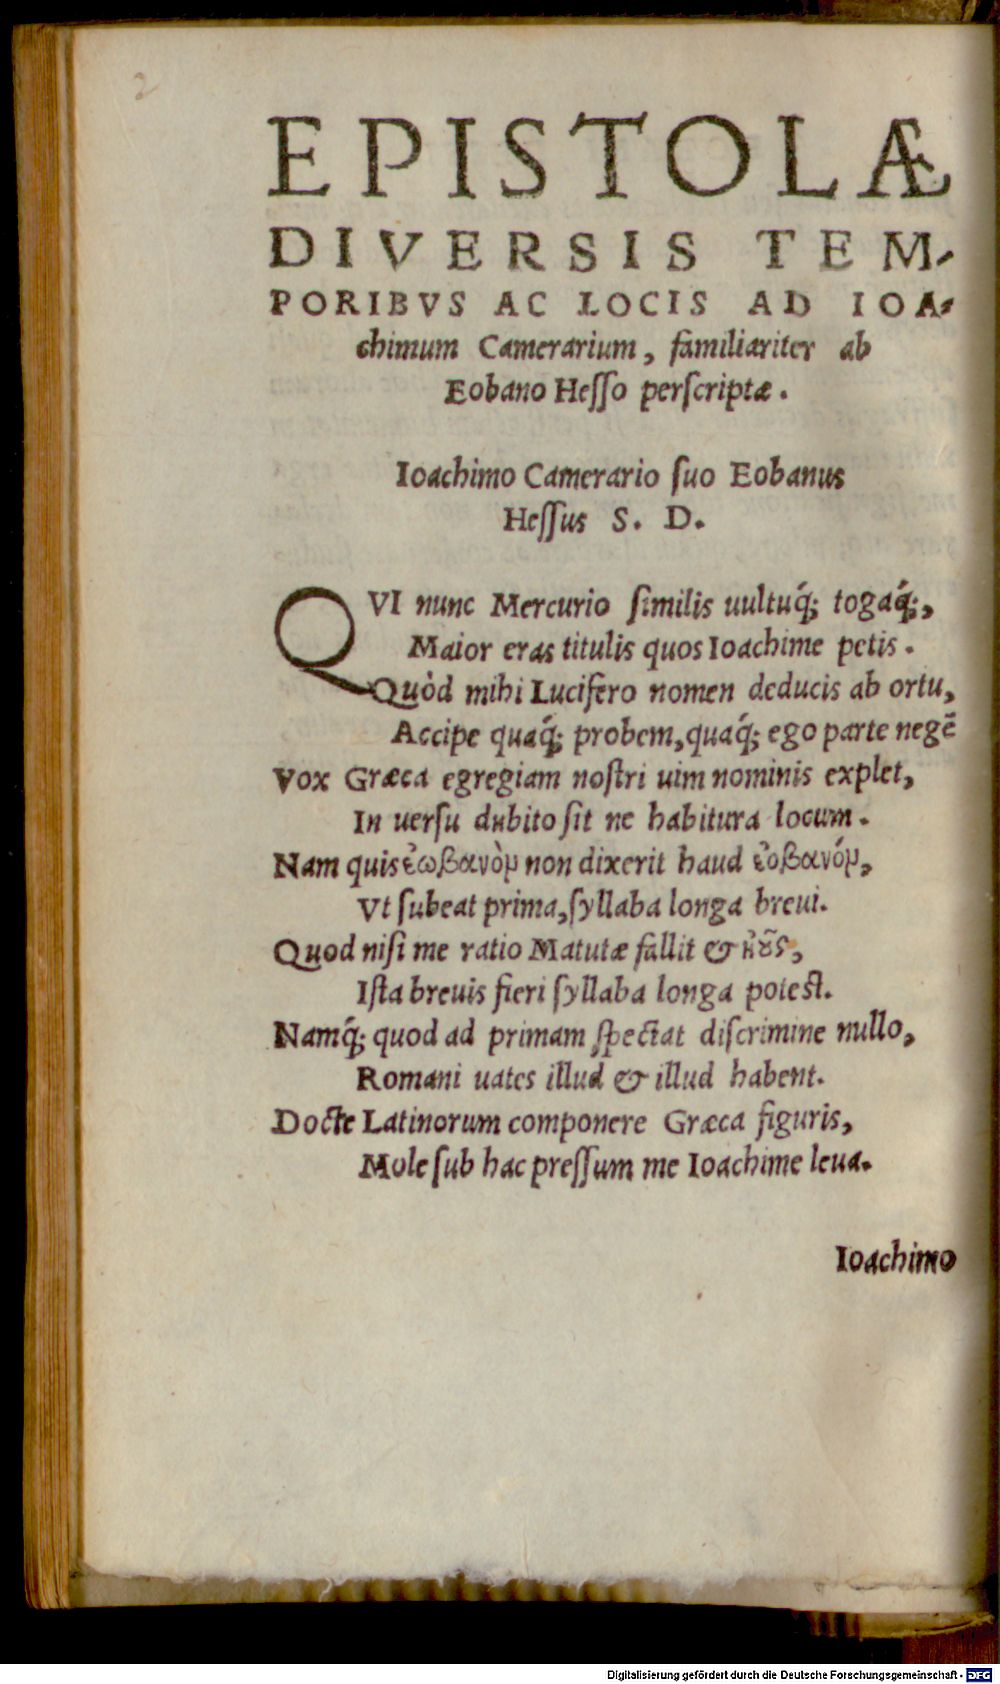 2
EPISTOLÆ
DIVERSIS TEM-
PORIBVS AC LOCIS AD IOA-
chimum Camerarium, familiariter ab
Eobano Hesso perscriptæ.
Ioachimo Camerario suo Eobanus
Hessus S. D.
QVI nunc Mercurio similis uultuq́; togaq́;,
Maior eras titulis quos Ioachime petis.
Quòd mihi Lucifero nomen deducis ab ortu,
Accipe quaq́; probem, quaq́; ego parte negẽ
Vox Græca egregiam nostri uim nominis explet,
In uersu dubito sit ne habitura locum.
Nam quis ἐωβανὸμ non dixerit haud ἐοβανόμ,
Vt subeat prima, syllaba longa breui.
Quod nisi me ratio Matutæ fallit & ἠȣ͂ς,
Ista breuis fieri syllaba longa potest.
Namq́; quod ad primam spectat discrimine nullo,
Romani uates illud & illud habent.
Docte Latinorum componere Græca figuris,
Mole sub hac pressum me Ioachime leua.
Ioachimo
Digitalisierung gefördert durch die Deutsche Forschungsgemeinschaft - DFG